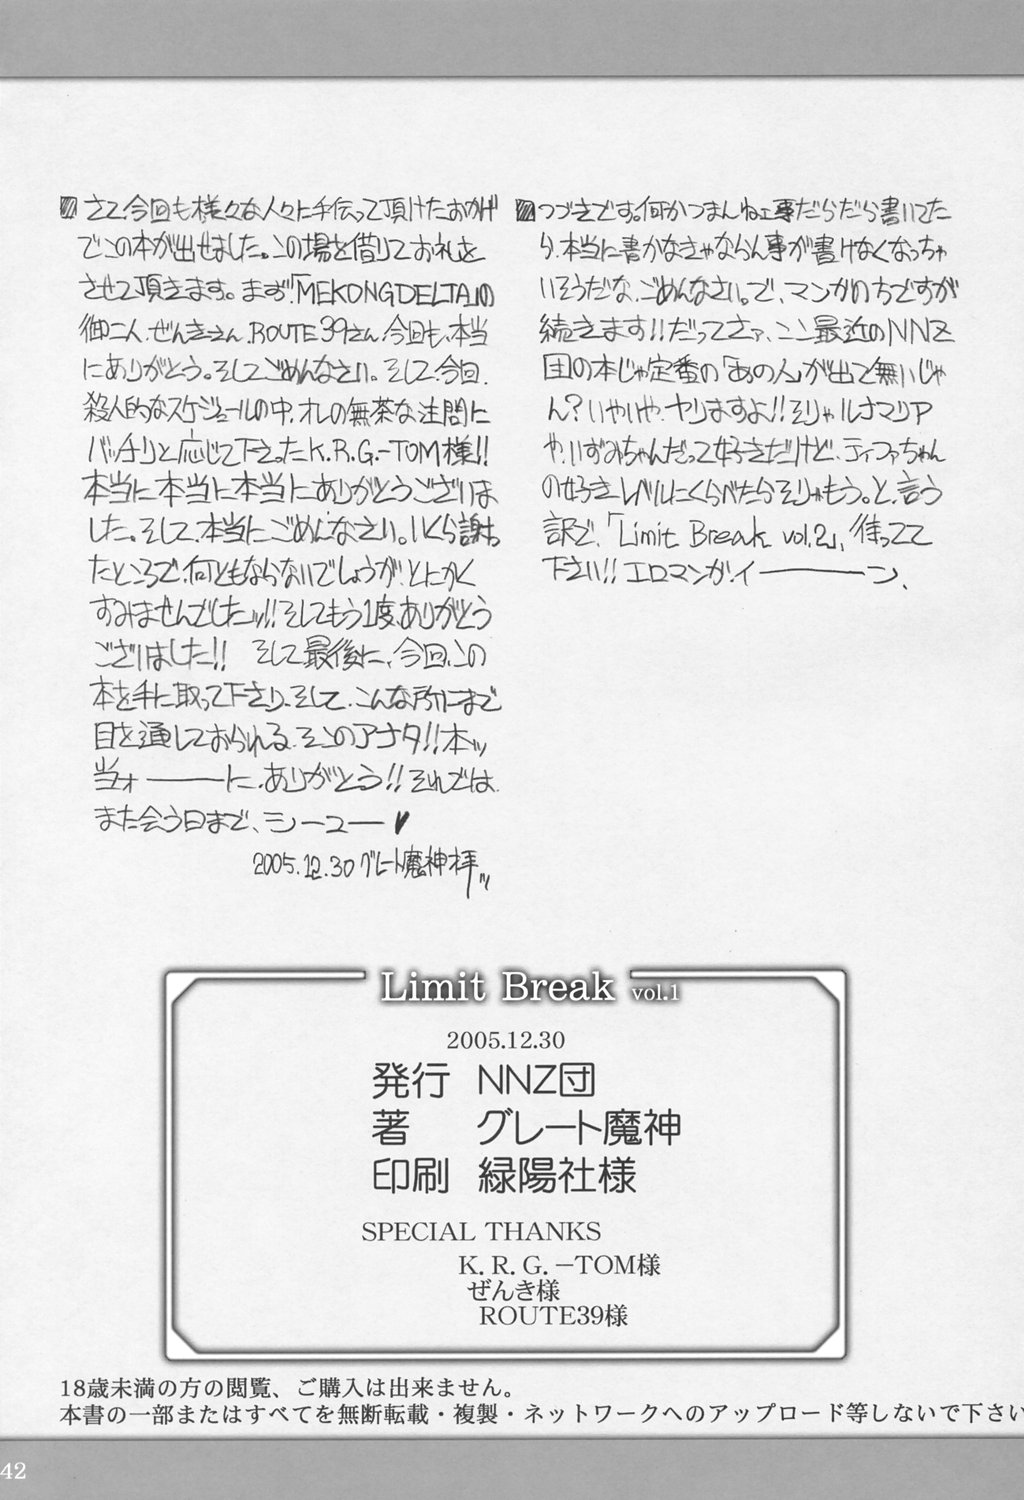 つづきです。何かつまんねェ事だらだら書いてた
ら、本当に書かなきゃならん事が書けなくなっちゃ
いそうだな、ごめんなさい。で、マンガのちですが
続きます!!だってさァ、ここ最近のNNZ
団の本じゃ定番の「あの人」が出て無いじゃ
ん?いやいや、ヤリますよ!!そりゃルナマリア
や、いずみちゃんだって好きだけど、ティファちゃん
の好きレベルにくらべたらそりゃもう。と、言う
訳で、「Limit Break vol.2」、待ってて
下さい!!エロマンガ、イーーーン、
さて、今回も様々な人々に手伝って頂けたおかげ
でこの本が出せました。この場を借りてお礼を
させて頂きます。まず、「MEKONGDELTA」の
御二人、ぜんきさん、ROUTE39さん、今回も、本当
にありがとう。そしてごめんなさい。そして、今回、
殺人的なスケジュールの中、オレの無茶な注問に
バッチリと応じて下さったK.R.G.-TOM様!!
本当に本当に本当にありがとうございま
した。そして、本当にごめんなさい。いくら謝っ
たところで、何ともならないでしょうが、とにかく
すみませんでしたッ!!そしてもう1度、ありがとう
ございました!! そして最後に、今回、この
本を手に取って下さり、そして、こんな所にまで
目を通しておられる、そこのアナタ!!本ッ
当ォーーーに、ありがとう!!それでは、
また会う日まで、シーユー♥
2005.12.30 グレート魔神拝ッ
Limit Break vol.1
2005.12.30
発行 NNZ団
著 グレート魔神
印刷 緑陽社様
SPECIAL THANKS
K.R.G.-TOM様
ぜんき様
ROUTE39様
18歳未満の方の閲覧、ご購入は出来ません。
本書の一部またはすべてを無断転載・複製・ネットワークへのアップロード等しないで下さい
42